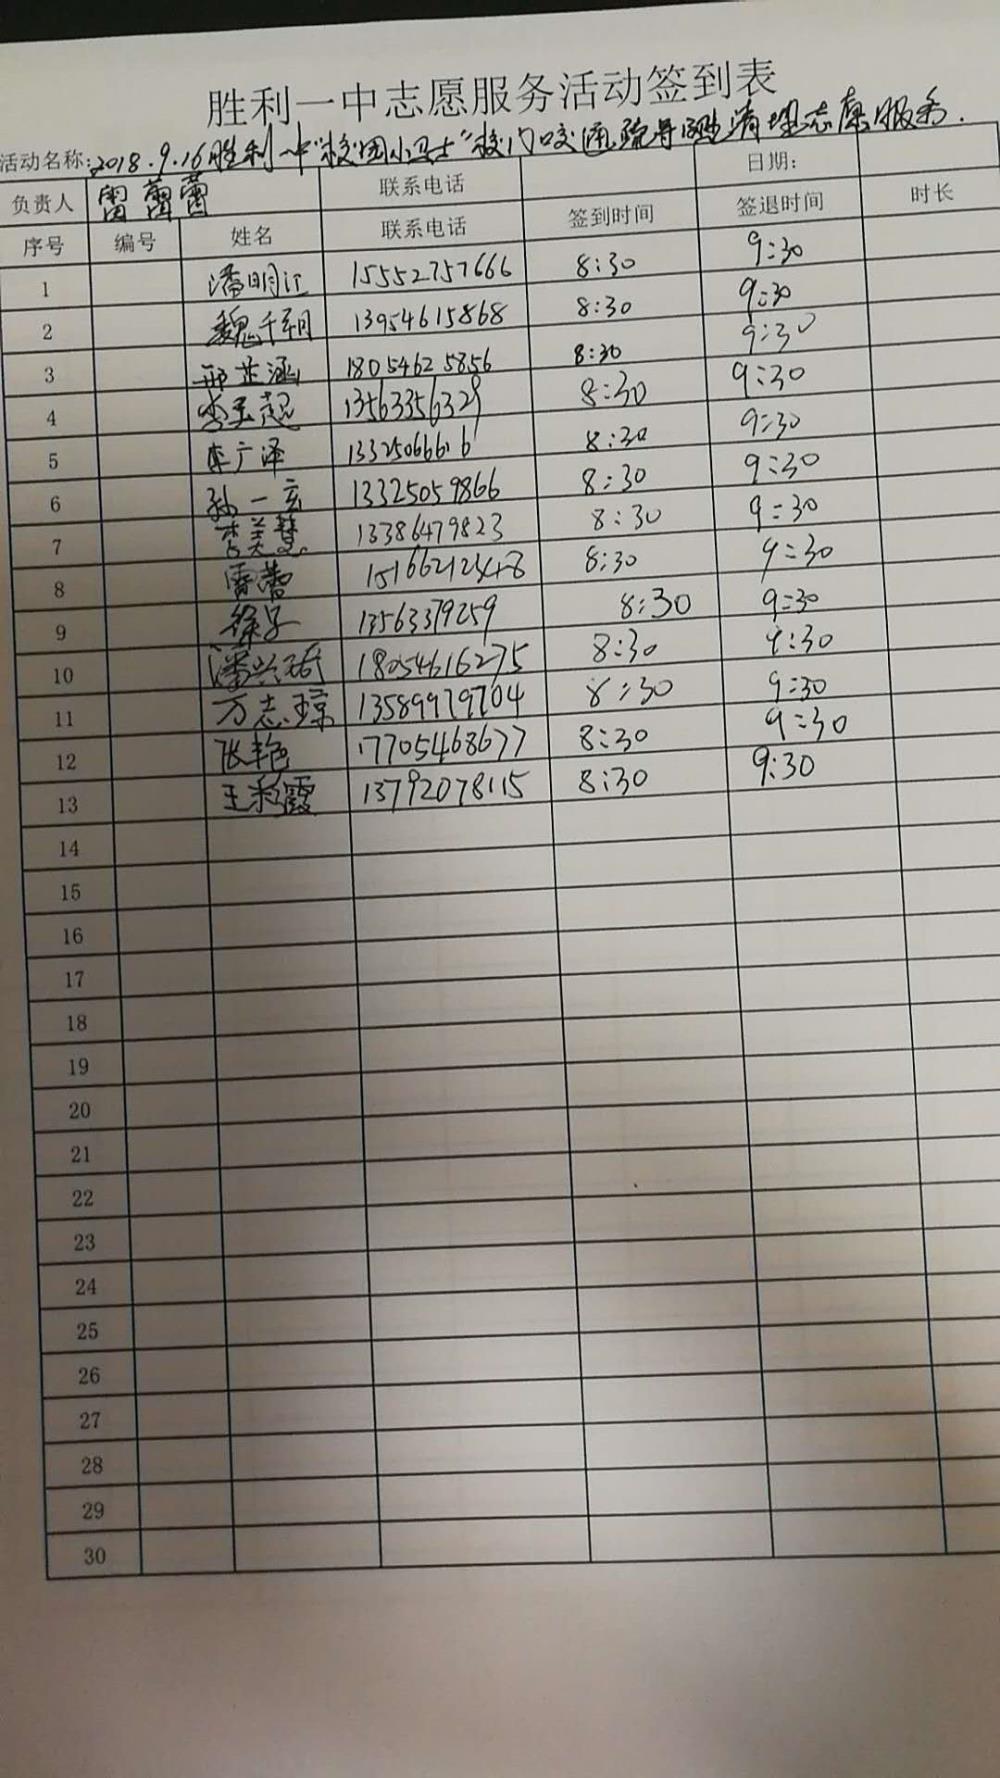 胜利一中志愿服务活动签到表
活动名称: 2018.9.16胜利一中"校园小卫士"校门口交通疏导 清理志愿服务.
负责人 雷蕾蕾 联系电话 日期:
序号 编号 姓名 联系电话 签到时间 签退时间 时长
1 潘明江 15552757666 8:30 9:30
2 魏千翔 13954615868 8:30 9:30
3 邢芷涵 18054625856 8:30 9:30
4 李玉超 13563356329 8:30 9:30
5 李广泽 13325066616 8:30 9:30
6 孙一玄 13325059866 8:30 9:30
7 李美慧 13386479823 8:30 9:30
8 雷蕾 8:30 9:30
9 徐子 13563379259 8:30 9:30
10 潘兴琦 18054616275 8:30 9:30
11 万志琼 13589979704 8:30 9:30
12 张艳 17705468677 8:30 9:30
13 王彩霞 13792078115 8:30 9:30
14
15
16
17
18
19
20
21
22
23
24
25
26
27
28
29
30